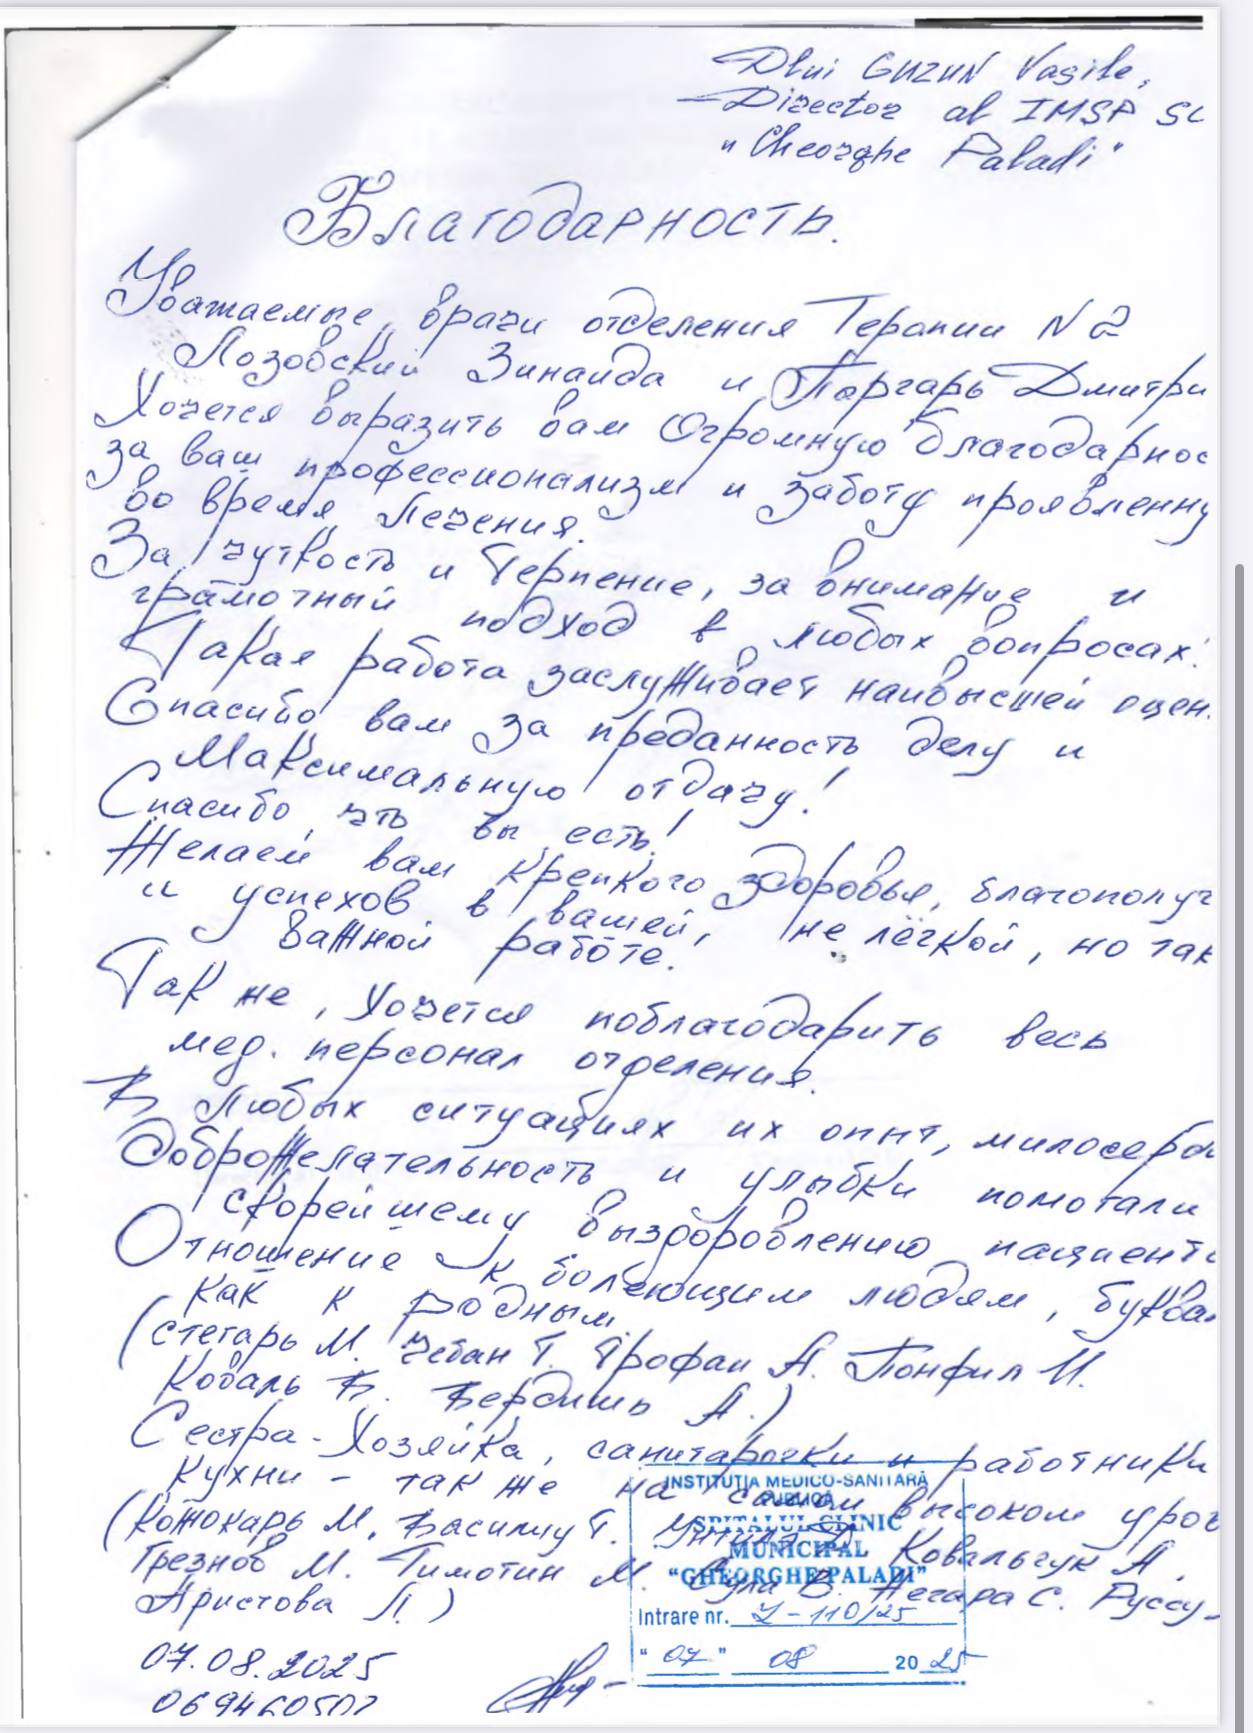 Dlui GUZUN Vasile,
Director al IMSP SC
"Gheorghe Paladi"
Благодарность.
Уважаемые, врачи отделения Терапии N2
Лозовский Зинаида и Поргарь Дмитри
Хочется выразить вам Огромную благодарнос
за ваш профессионализм и заботу проявленну
во время лечения.
За чуткость и терпение, за внимание и
грамотный подход в любых вопросах.
Такая работа заслуживает наивысшей оцен.
Спасибо вам за преданность делу и
Максимальную отдачу!
Спасибо, что вы есть!
Желаем вам крепкого здоровья, благополуч
и успехов в вашей, не лёгкой, но так
важной работе.
Так же, хочется поблагодарить весь
мед. персонал отделения.
В любых ситуациях их опыт, милосерд
Доброжелательность и улыбки помогали
скорейшему выздоровлению пациент
Отношение к болеющим людям, буква
как к родным
(Стегарь М. Чебан Т. Трофаи А. Понфил М.
Коваль В. Бердишь А.)
Сестра-хозяйка, санитарочки и работники
кухни - так же на самом высоком уров
(Кожокарь М. Василицу Т. Ковальчук А.
Грезнов М. Тимотин М. В. Негара С. Руссу
Аристова Л.)
INSTITUȚIA MEDICO-SANITARĂ
PUBLICĂ
SPITALUL CLINIC
MUNICIPAL
"GHEORGHE PALADI"
Intrare nr. Z-110/25
"07" 08 2025
07.08.2025